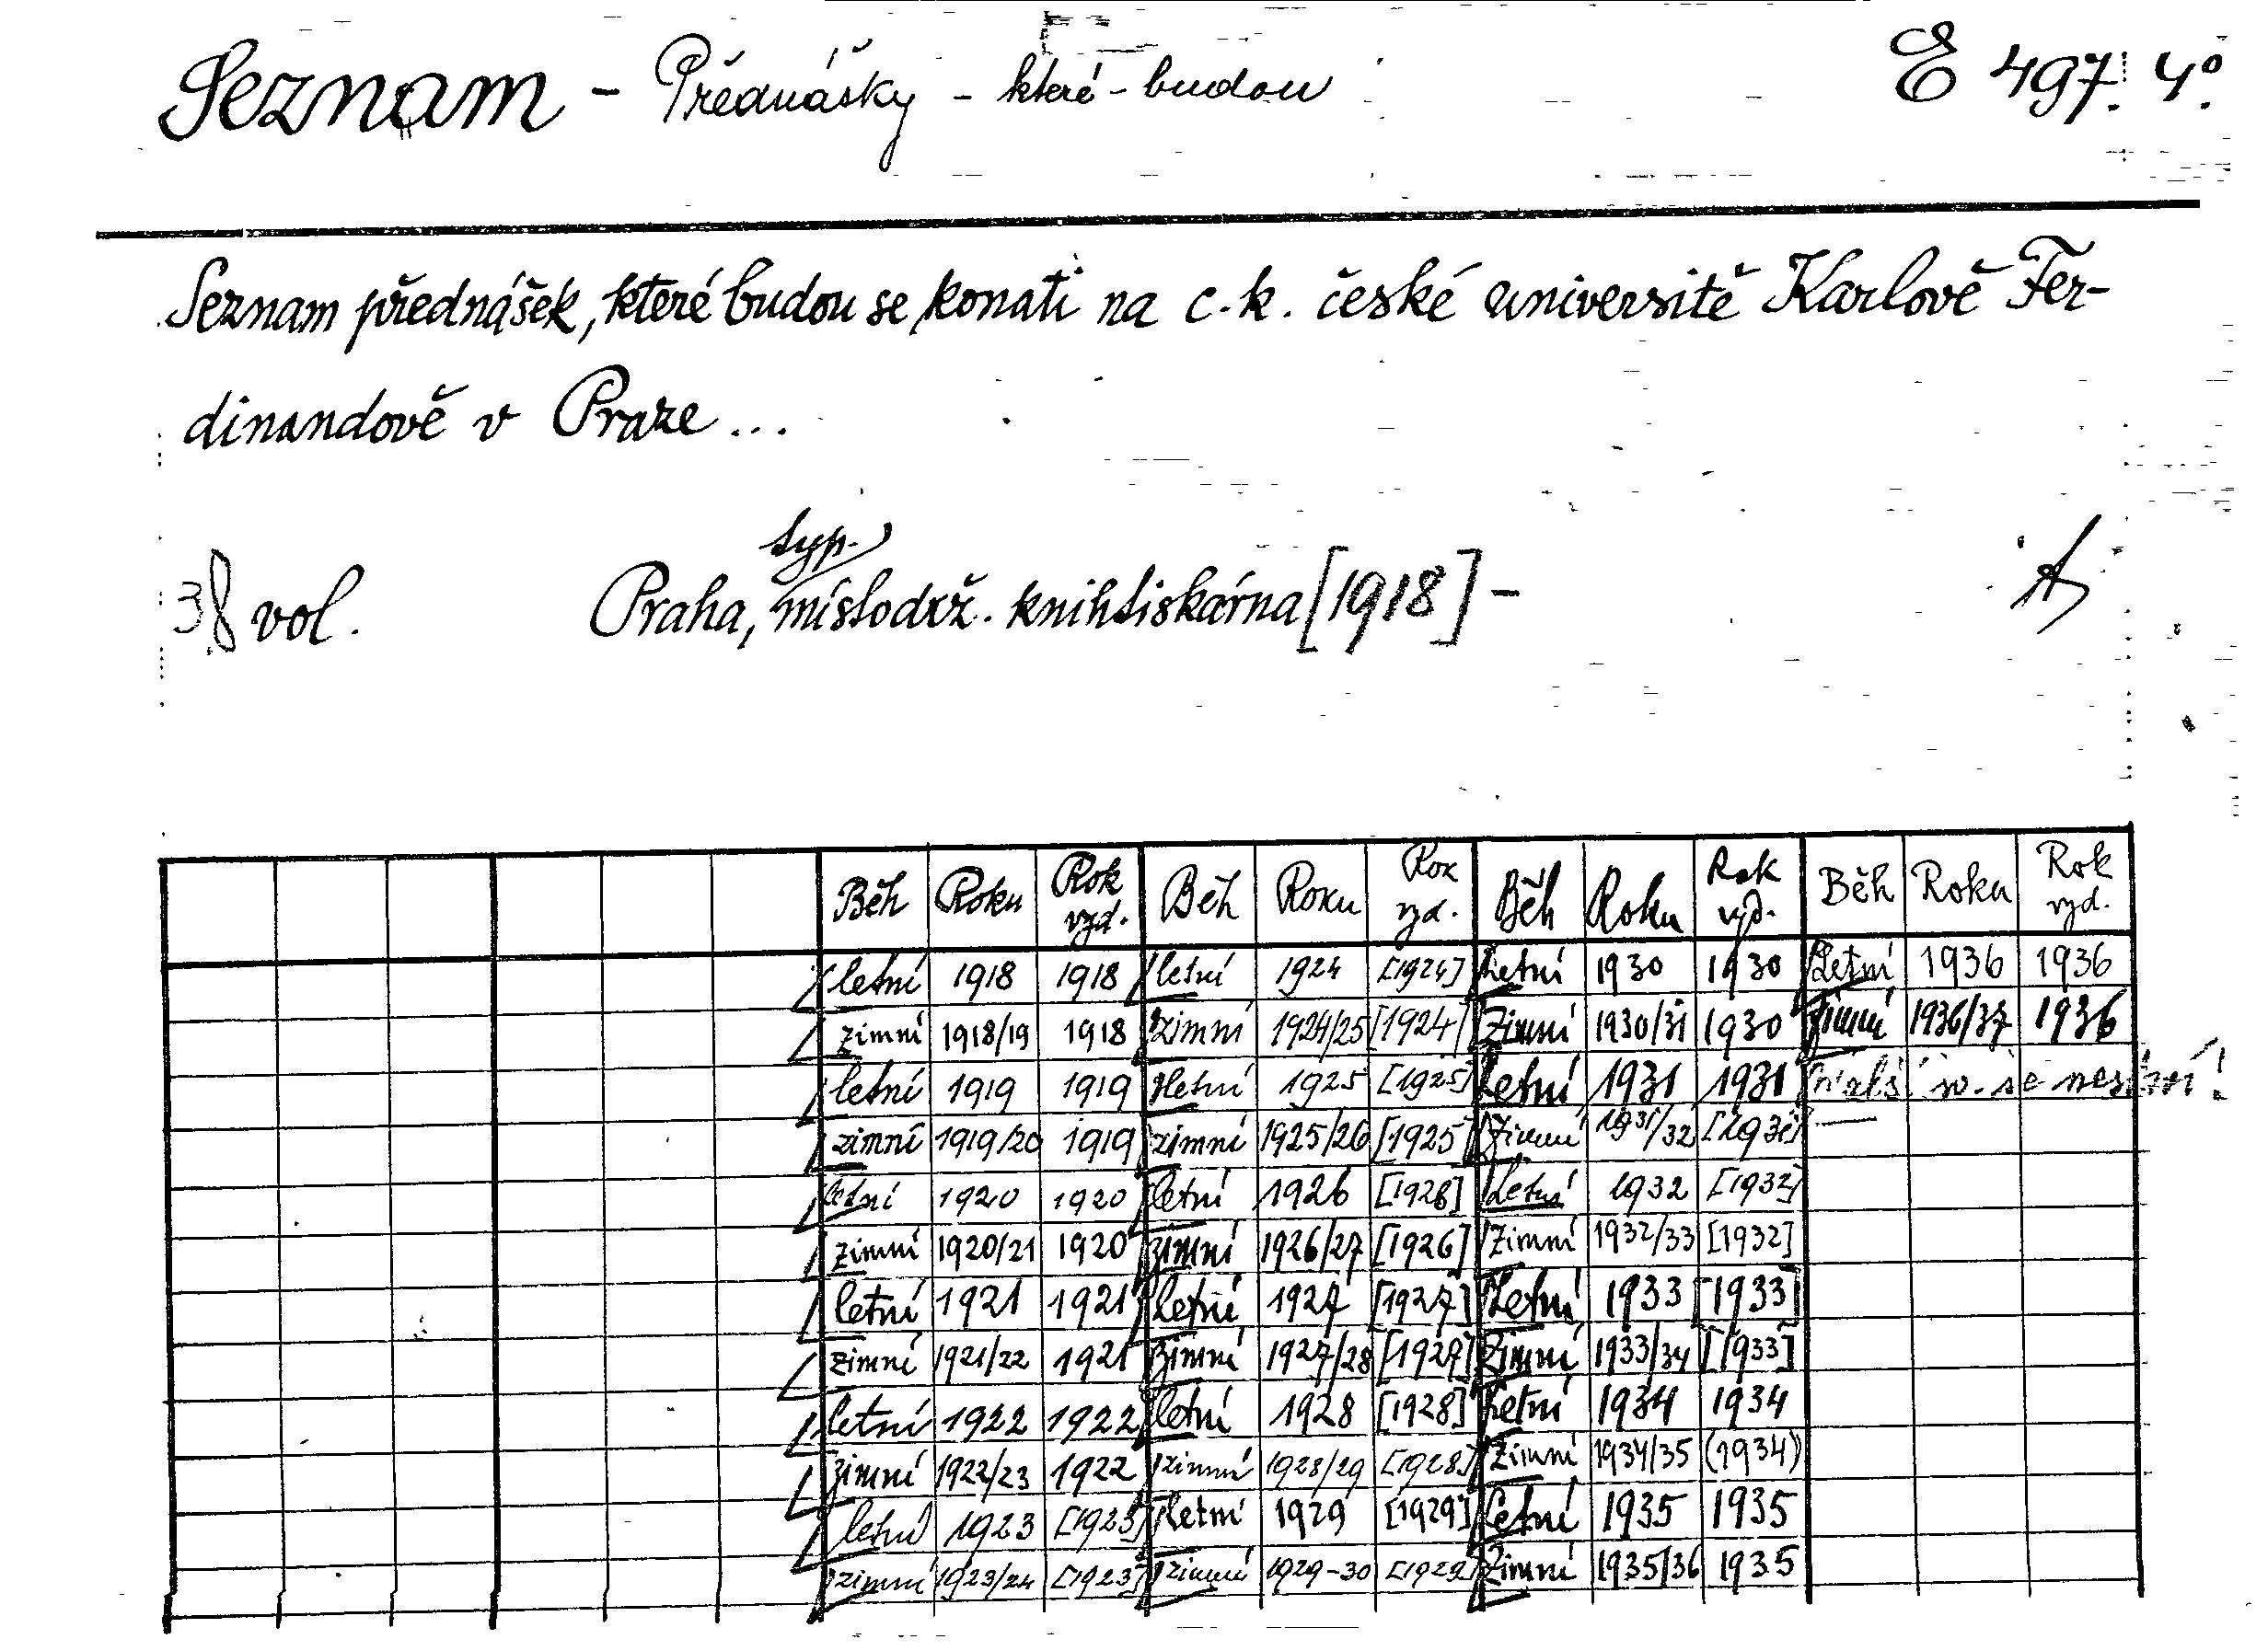 Seznam - Přednášky - které - budou E 497. 4°.
Seznam přednášek, které budou se konati na c. k. české universitě Karlově Fer-
dinandově v Praze ...
typ.
38 vol. Praha, místodrž. knihtiskárna [1918] -
Běh Roku Rok vyd. Běh Roku Rok vyd. Běh Roku Rok vyd. Běh Roku Rok vyd.
letní 1918 1918 letní 1924 [1924] Letní 1930 1930 Letní 1936 1936
zimní 1918/19 1918 zimní 1924/25 [1924] Zimní 1930/31 1930 Zimní 1936/37 1936
letní 1919 1919 letní 1925 [1925] Letní 1931 1931 se
zimní 1919/20 1919 zimní 1925/26 [1925] Zimní 1931/32 [1931]
letní 1920 1920 letní 1926 [1926] Letní 1932 [1932]
zimní 1920/21 1920 zimní 1926/27 [1926] Zimní 1932/33 [1932]
letní 1921 1921 letní 1927 [1927] Letní 1933 [1933]
zimní 1921/22 1921 zimní 1927/28 [1927] Zimní 1933/34 [1933]
letní 1922 1922 letní 1928 [1928] Letní 1934 1934
zimní 1922/23 1922 zimní 1928/29 [1928] Zimní 1934/35 (1934)
letní 1923 [1923] Letní 1929 [1929] Letní 1935 1935
zimní 1923/24 [1923] zimní 1929-30 [1929] Zimní 1935/36 1935